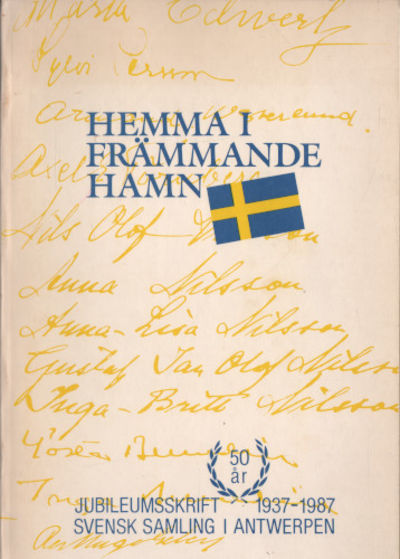 Märta Edwert
Sylvi Persson
HEMMA I
FRÄMMANDE
HAMN
Axel
Nils Olof
Anna Nilsson
Anna-Lisa Nilsson
Gustaf Jan Olof Nilsson
Inga-Britt Nilsson
Gösta
50
år
JUBILEUMSSKRIFT 1937-1987
SVENSK SAMLING I ANTWERPEN